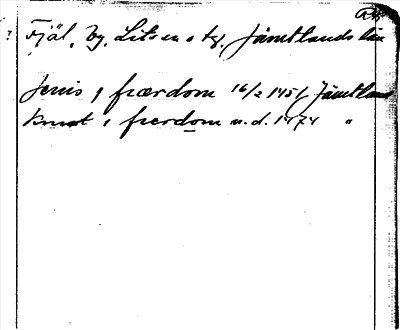 ? Fjäl, by, Lits sn o tg, Jämtlands län
Jenis j frærdom 16/2 1451, Jämtland
Knut i frerdom u.d. 1474 "